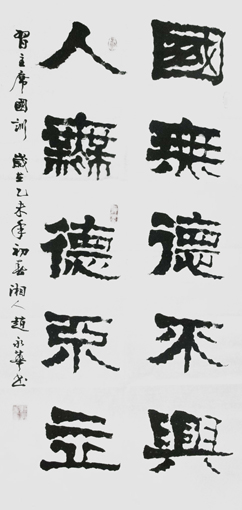 國無德不興
人無德不立
習主席國訓 歲在乙未年初春 湘人趙永華書